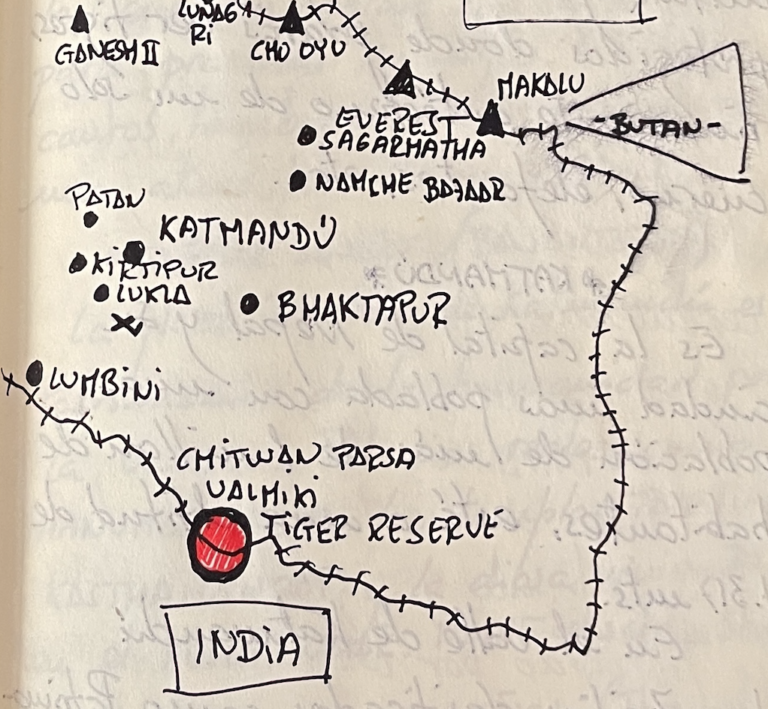 LUNAG
RI
GANESH II
CHO OYU
MAKALU
EVEREST
SAGARMATHA
-BUTAN-
NAMCHE BAZAAR
PATAN
KATMANDÚ
KIRTIPUR
LUKLA
BHAKTAPUR
LUMBINI
CHITWAN PARSA
VALMIKI
TIGER RESERVE
INDIA